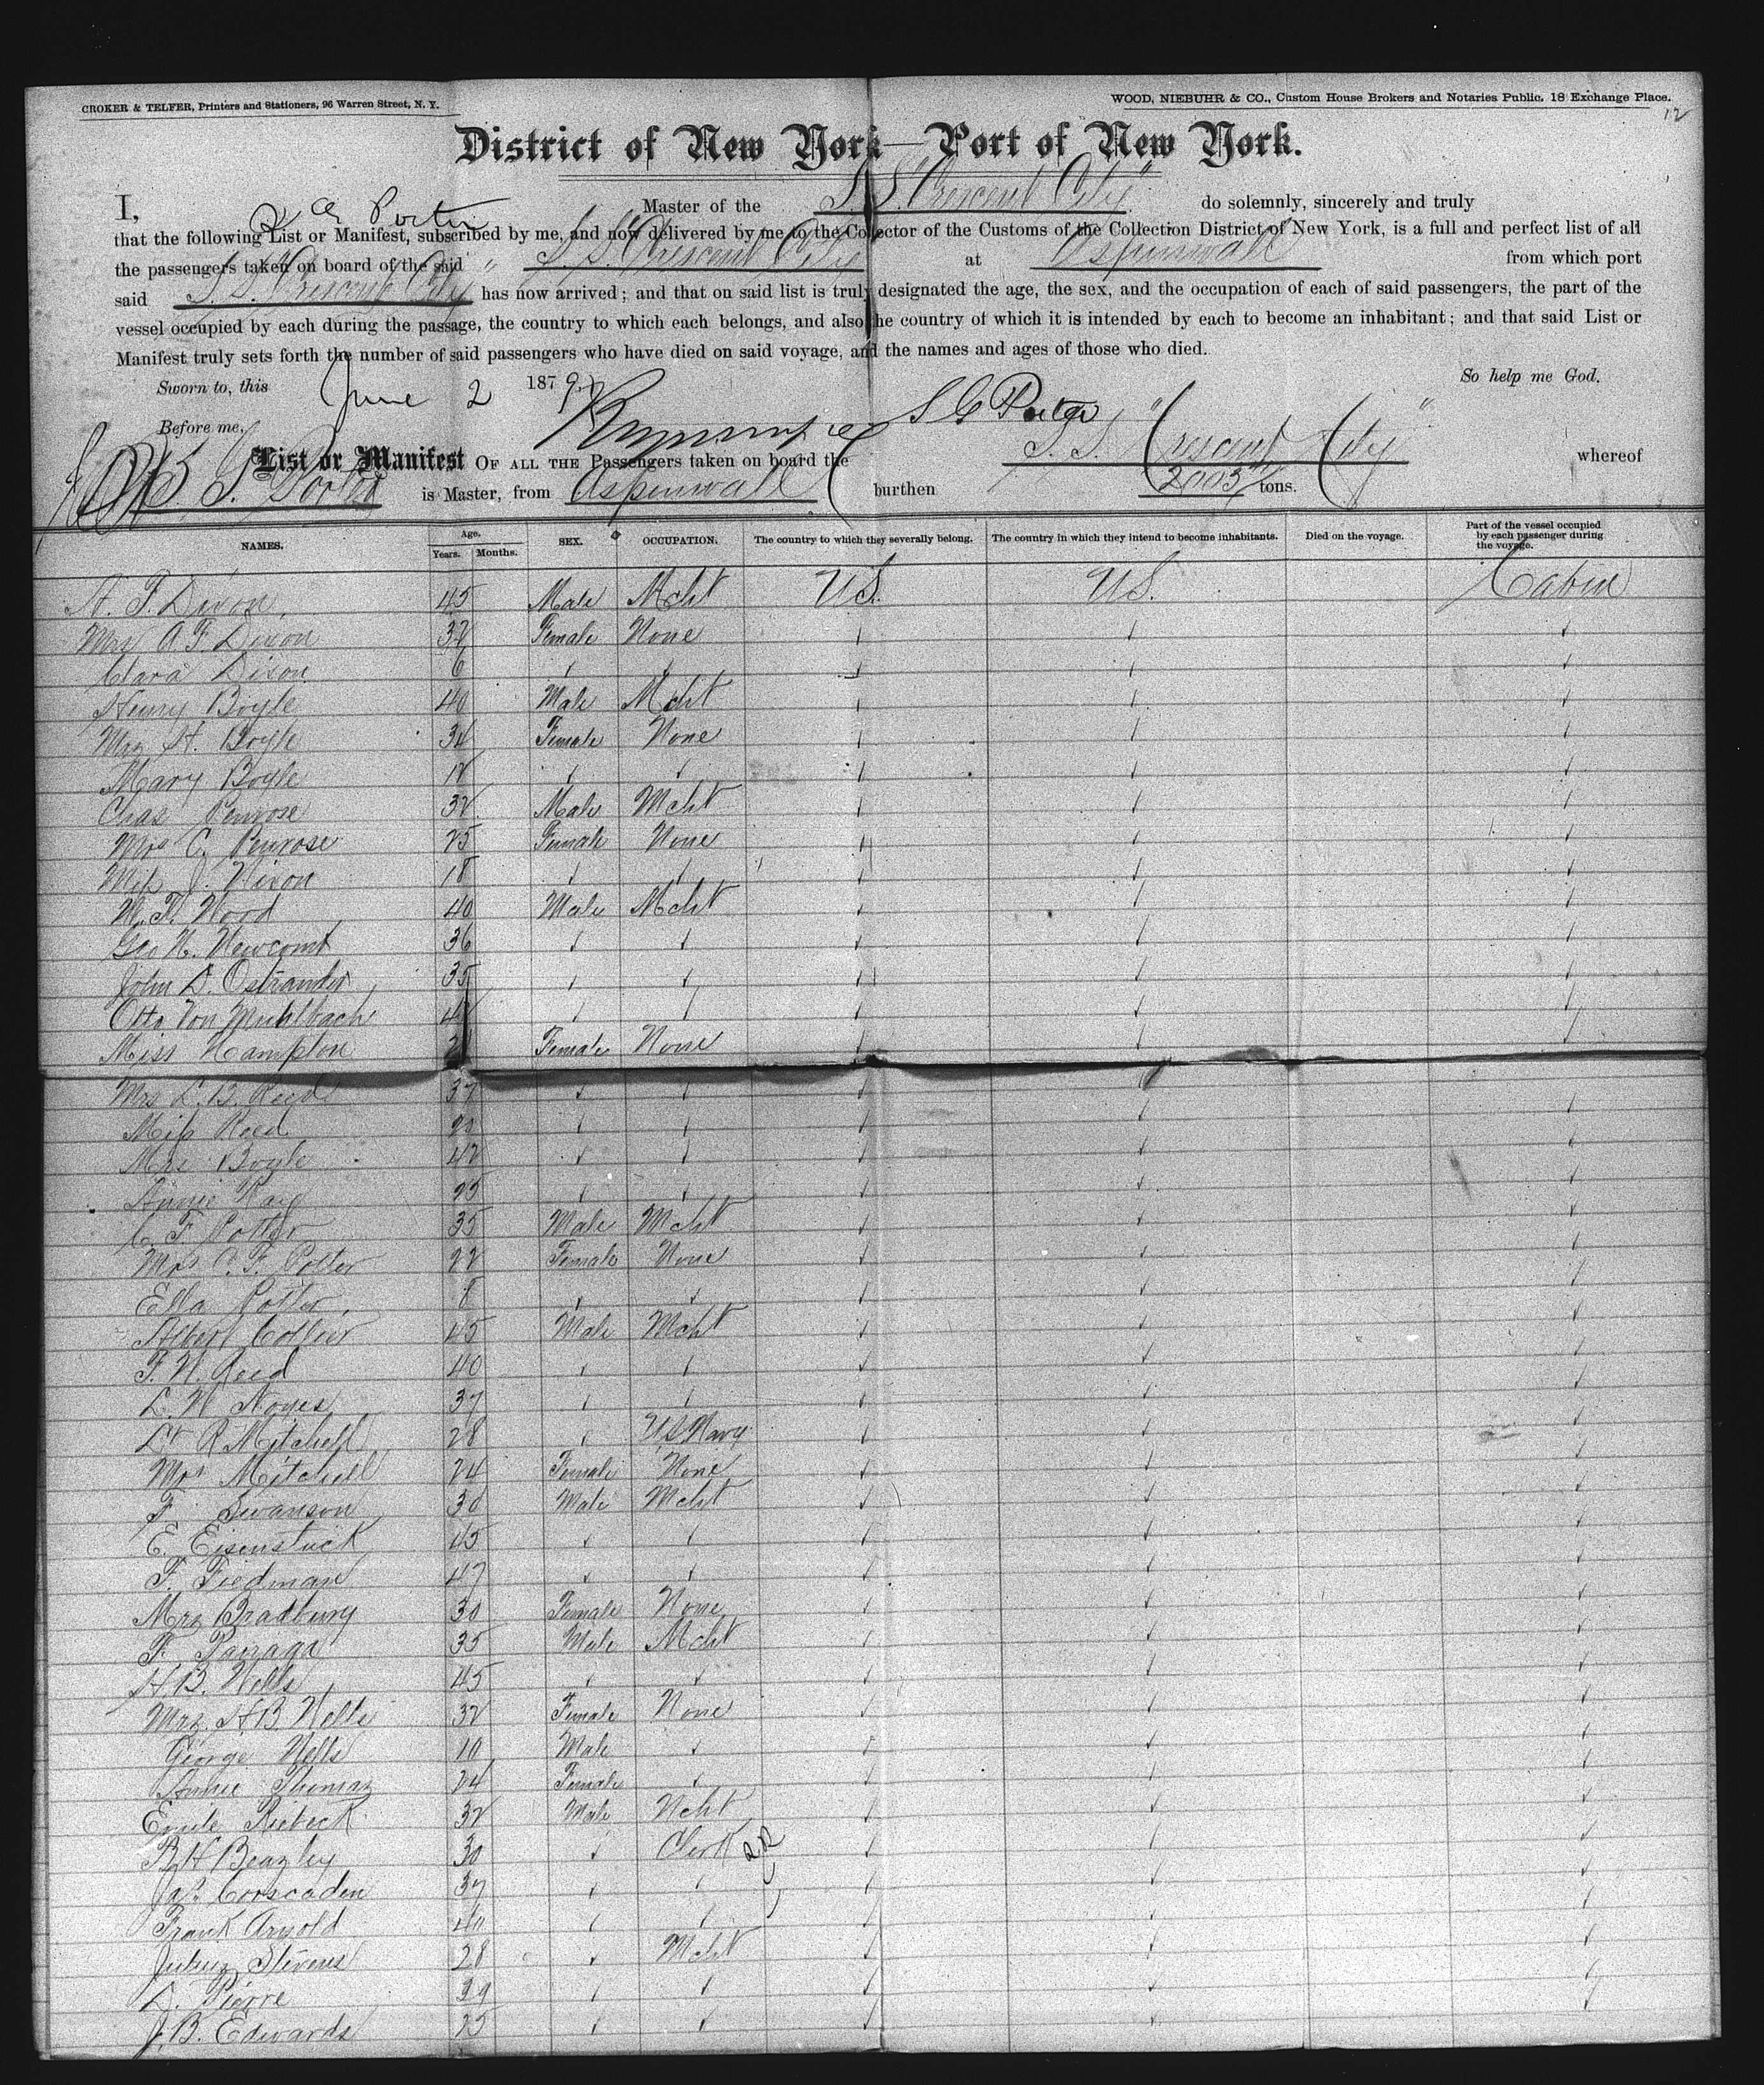 CROKER & TELFER, Printers and Stationers, 96 Warren Street, N. Y.
WOOD, NIEBUHR & CO., Custom House Brokers and Notaries Public, 18 Exchange Place.
12
District of New York—Port of New York.
I, Porter Master of the S.S. "Crescent City" do solemnly, sincerely and truly
that the following List or Manifest, subscribed by me, and now delivered by me to the Collector of the Customs of the Collection District of New York, is a full and perfect list of all
the passengers taken on board of the said S.S. Crescent City at Aspinwall from which port
said S.S. Crescent City has now arrived; and that on said list is truly designated the age, the sex, and the occupation of each of said passengers, the part of the
vessel occupied by each during the passage, the country to which each belongs, and also the country of which it is intended by each to become an inhabitant; and that said List or
Manifest truly sets forth the number of said passengers who have died on said voyage, and the names and ages of those who died.
Sworn to, this June 2 1879 So help me God.
Before me, S G Porter
List or Manifest OF ALL THE Passengers taken on board the S.S. "Crescent City" whereof
S. G. Porter is Master, from Aspinwall burthen 2003 tons.
NAMES. Age. Years. Months. SEX. OCCUPATION. The country to which they severally belong. The country in which they intend to become inhabitants. Died on the voyage. Part of the vessel occupied by each passenger during the voyage.
A. F. Dixon 45 Male Mcht U.S. U.S. Cabin
Mrs A. F. Dixon 32 Female None
Clara Dixon 6
Henry Boyle 40 Male Mcht
Mrs H. Boyle 34 Female None
Mary Boyle 12
Chas Penrose 32 Male Mcht
Mrs C. Penrose 25 Female None
Miss J. Nixon 18
W. F. Wood 40 Male Mcht
Geo H. Newcomb 36
John D. Ostrander 35
Otto Von Muhlbach 42
Miss Hampton Female None
Mrs L. B. Reed 37
Miss Reed 20
Mrs Boyle 42
Annie 25
C. F. Potter 35 Male Mcht
Mrs C. F. Potter 22 Female None
Ella Potter 8
Albert Collier 45 Male Mcht
F. W. Reed 40
L. W. Noyes 37
Lt R Mitchell 28 US Navy
Mrs Mitchell 24 Female None
F. Swanson 30 Male Mcht
E. Eisenstuck 45
F. Fiedman 47
Mrs Bradbury 30 Female None
F. 35 Male Mcht
H. B. Wells 45
Mrs. H B Wells 32 Female None
George Wells 10 Male
Annie Thomas 24 Female
Emile Riebeck 32 Male Mcht
B H Beazley 30 Clerk RR
Jas. Corscaden 37
Frank Arnold 40
Julius Stevens 28 Mcht
D. Pierre 39
J. B. Edwards 25